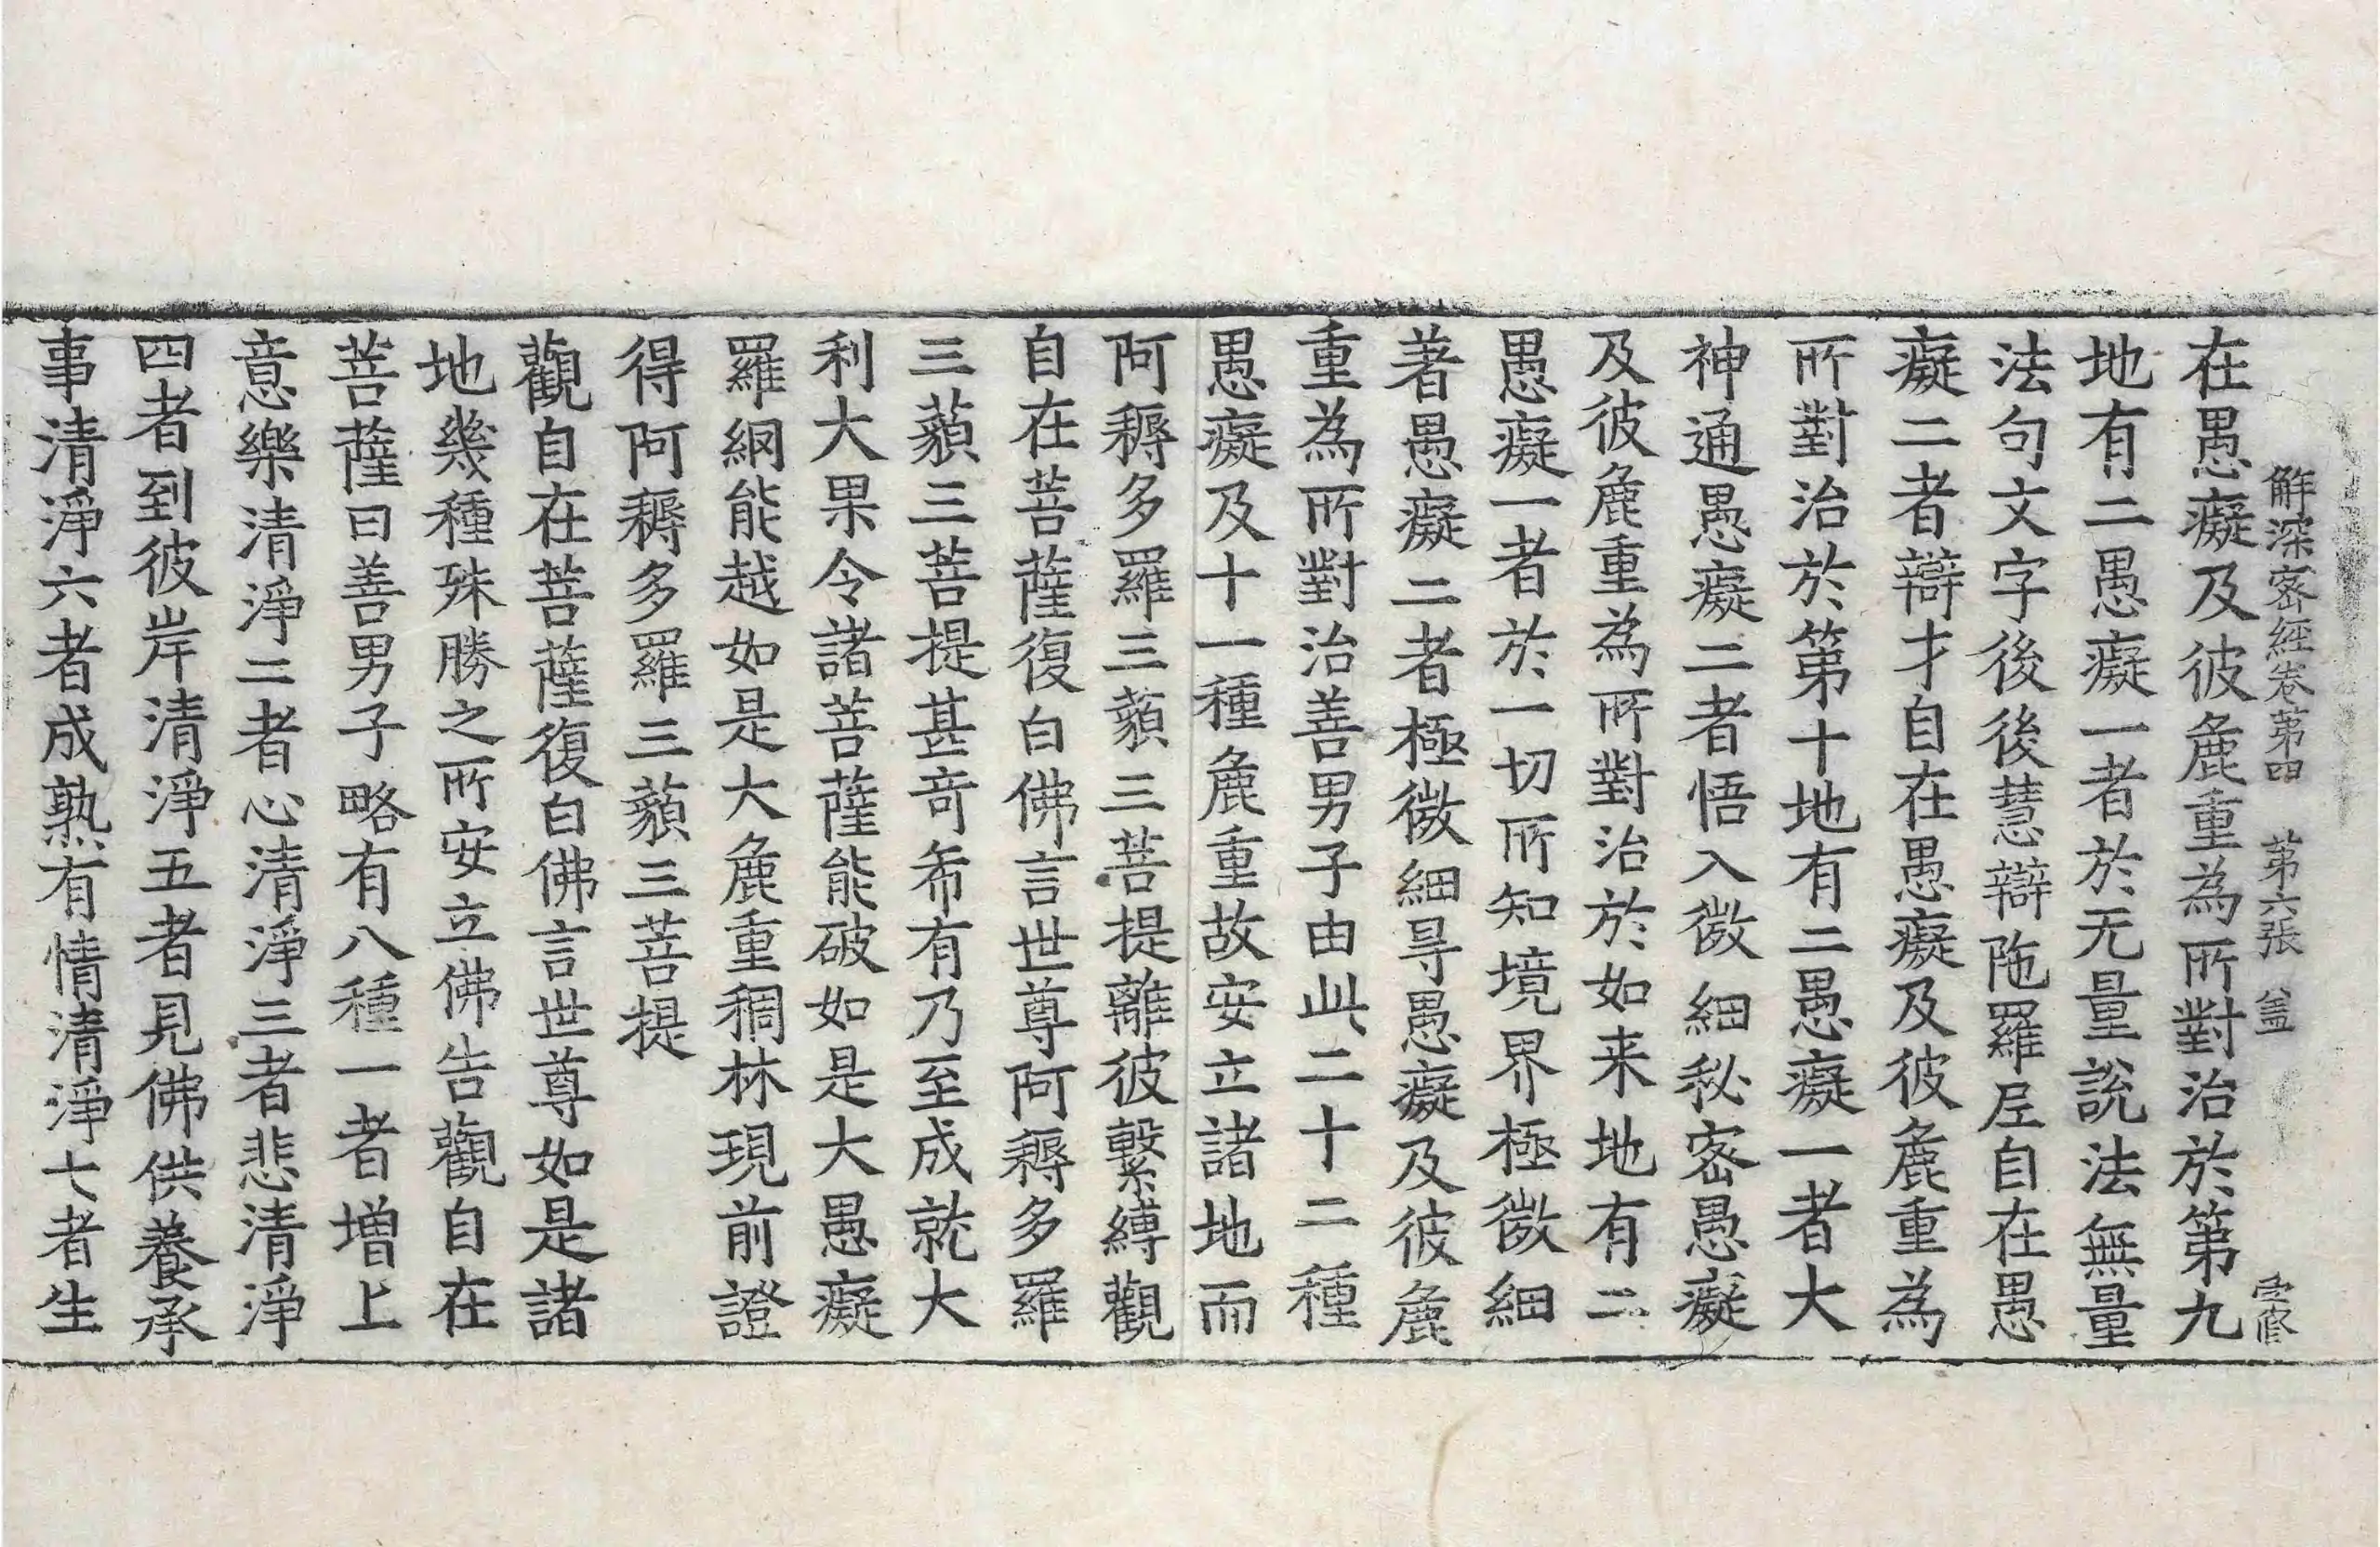 解深密經卷第四 第六張 盖
在愚癡及彼麁重為所對治於第九
地有二愚癡一者於无量說法無量
法句文字後後慧辯陁羅尼自在愚
癡二者辯才自在愚癡及彼麁重為
所對治於第十地有二愚癡一者大
神通愚癡二者悟入微細秘密愚癡
及彼麁重為所對治於如来地有二
愚癡一者於一切所知境界極微細
著愚癡二者極微細㝵愚癡及彼麁
重為所對治善男子由此二十二種
愚癡及十一種麁重故安立諸地而
阿耨多羅三藐三菩提離彼繫縛觀
自在菩薩復白佛言世尊阿耨多羅
三藐三菩提甚奇希有乃至成就大
利大果令諸菩薩能破如是大愚癡
羅網能越如是大麁重稠林現前證
得阿耨多羅三藐三菩提
觀自在菩薩復白佛言世尊如是諸
地幾種殊勝之所安立佛告觀自在
菩薩曰善男子略有八種一者增上
意樂清淨二者心清淨三者悲清淨
四者到彼岸清淨五者見佛供養承
事清淨六者成熟有情清淨七者生